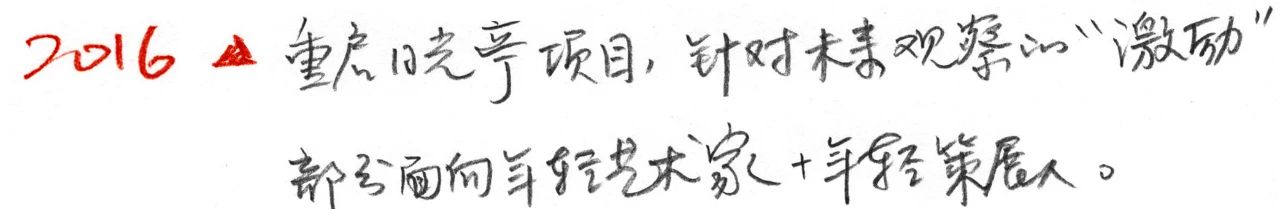 2016 ▲ 重启日光亭项目，针对未来观察的“激励”
部分面向年轻艺术家+年轻策展人。